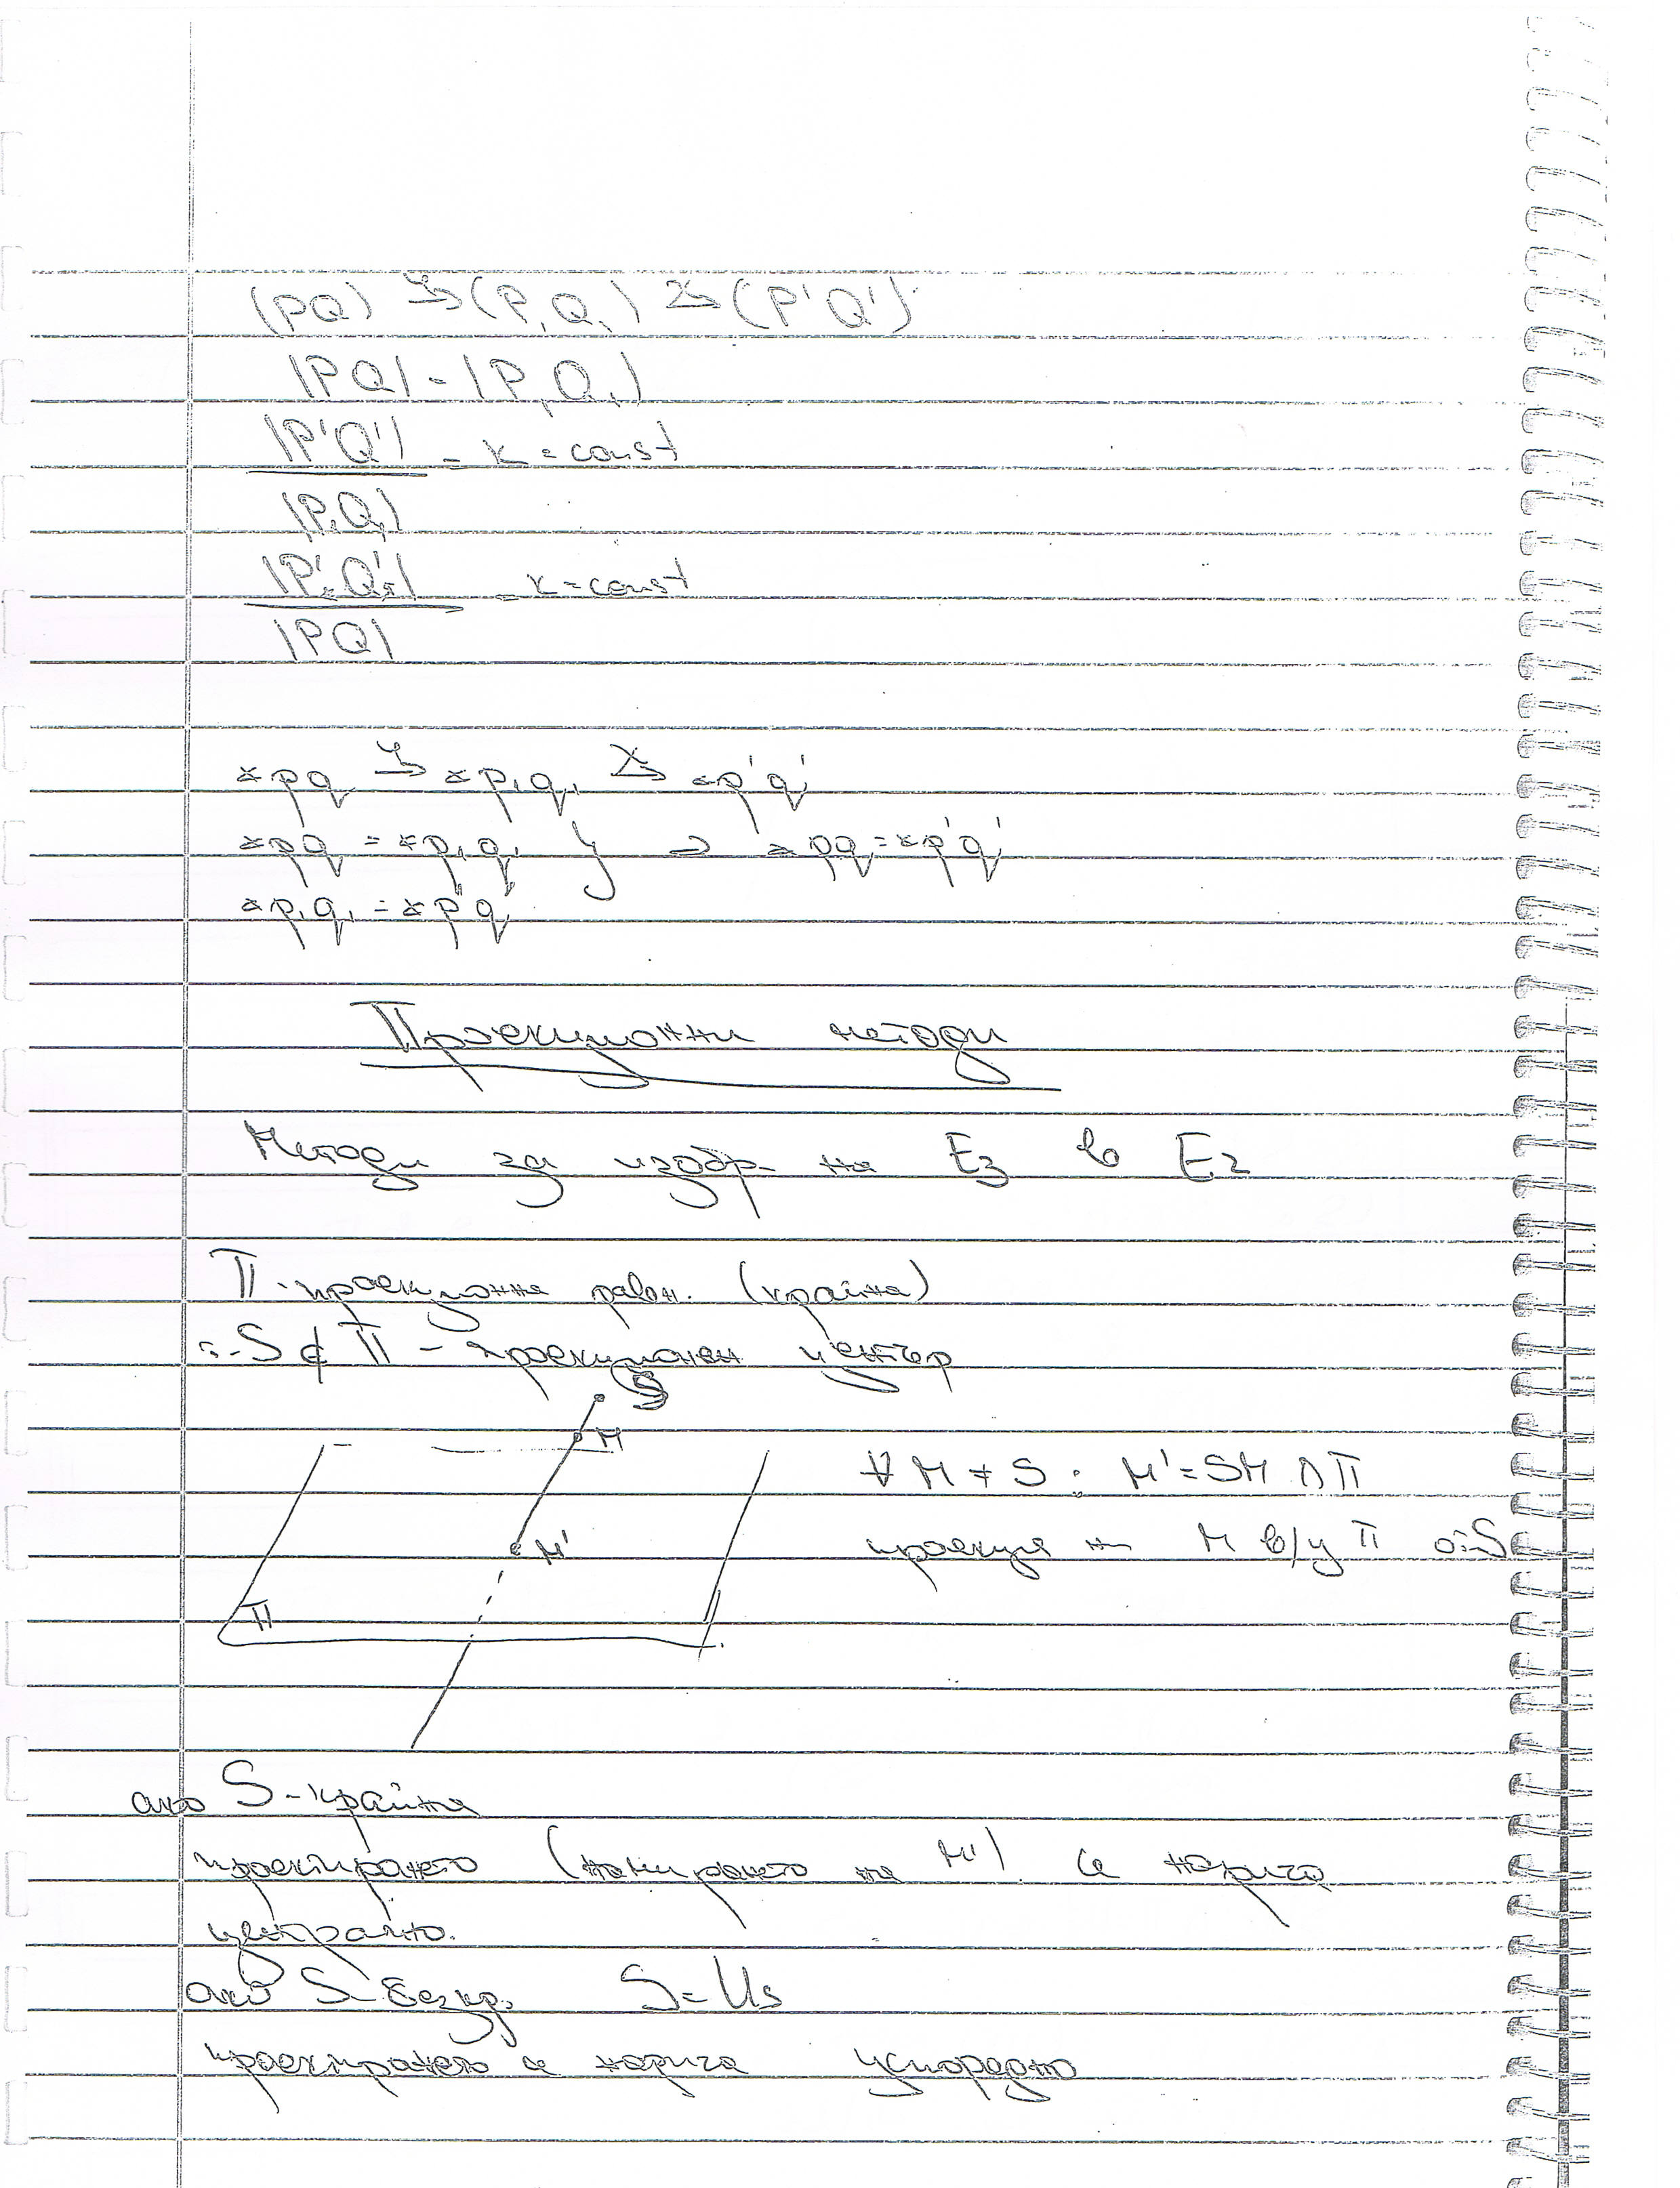 (PQ) → (P₁Q₁) → (P'Q')
|PQ| = |P₁Q₁|
|P'Q'| = k = const
|P₁Q₁|
|P'Q'| = k = const
|PQ|
∢pq → ∢p₁q₁ → ∢p'q'
∢pq = ∢p₁q₁ } ⇒ ∢pq = ∢p'q'
∢p₁q₁ = ∢p'q'
Проекционни методи
Методи за изобр. на E₃ в E₂
π - проекционна равн. (крайна)
S ∉ π - проекционен център
S
M
∀ M ≠ S : M' = SM ∩ π
M'
проекция на M в/у π от S
π
ако S - крайна
проектирането (намирането на M') се нарича
централно.
ако S - безкр. S = Us
проектирането се нарича успоредно